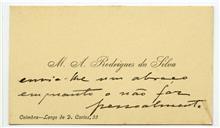 M. A. Rodrigues da Silva
envia-lhe um abraço
emquanto o não faz
pessoalmente.
Coimbra—Largo de D. Carlos, 55